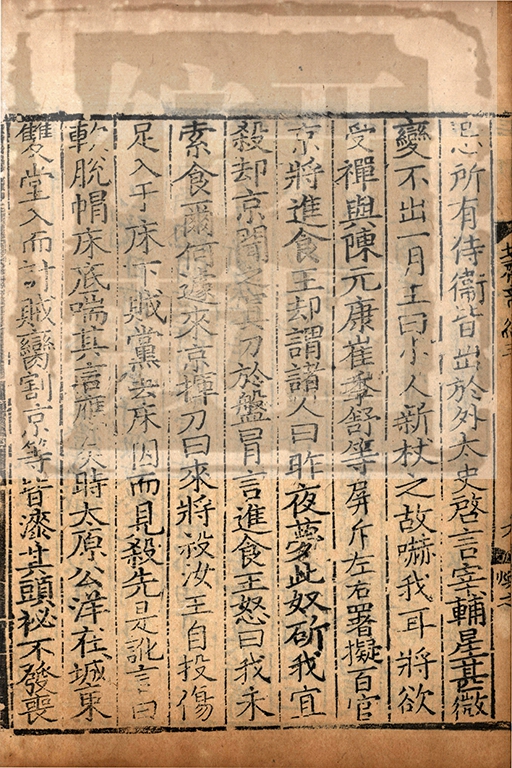 忌所有侍衞皆出於外太史啓言宰輔星甚微
變不出一月王曰小人新杖之故嚇我耳將欲
受禪與陳元康崔季舒等屏斥左右署擬百官
京將進食王却謂諸人曰昨夜夢此奴斫我宜
殺却京聞之寘刀於盤冒言進食王怒曰我未
索食爾何遽來京揮刀曰來將殺汝王自投傷
足入于床下賊黨去床因而見殺先是訛言曰
軟脫帽床底喘其言應矣時太原公洋在城東
雙堂入而討賊臠割京等皆漆其頭祕不發喪